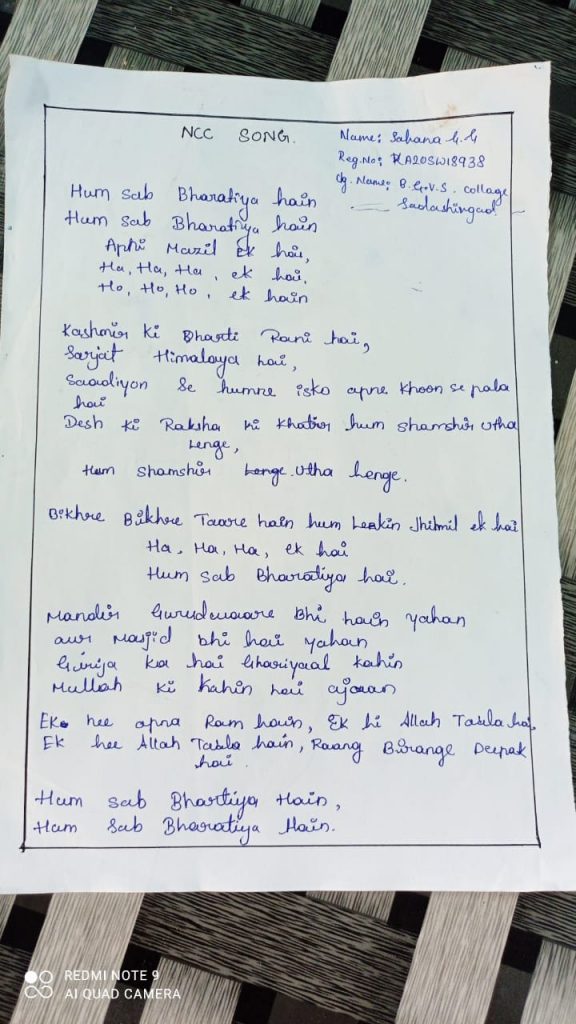 NCC SONG.
Name: Sahana G.G
Reg.No: KA20SWI8938
Clg. Name: B.G.V.S. collage
Sadashivgad
Hum sab Bharatiya hain
Hum sab Bharatiya hain
Aphi Mazil Ek hai,
Ha, Ha, Ha, ek hai,
Ho, Ho, Ho, ek hain
Kashmir ki Dharti Rani hai,
Sarjat Himalaya hai,
Saadiyon Se humne isko apne khoon se pala
hai
Desh ki Raksha ki Khatir hum shamshir utha
lenge,
Hum shamshir utha lenge.
Bikhre Bikhre Taare hain hum Leakin Jhilmil ek hai
Ha, Ha, Ha, ek hai
Hum sab Bharatiya hai.
Mandir Gurudwaare Bhi hain yahan
aur Masjid bhi hai yahan
Girija ka hai Ghariyaal kahin
Mullah ki kahin hai ajaan
Ek hee apna Ram hain, Ek hi Allah Taala hai,
Ek hee Allah Taala hain, Raang Birange Deepak
hai.
Hum sab Bhartiya Hain,
Hum Sab Bharatiya Hain.
REDMI NOTE 9
AI QUAD CAMERA